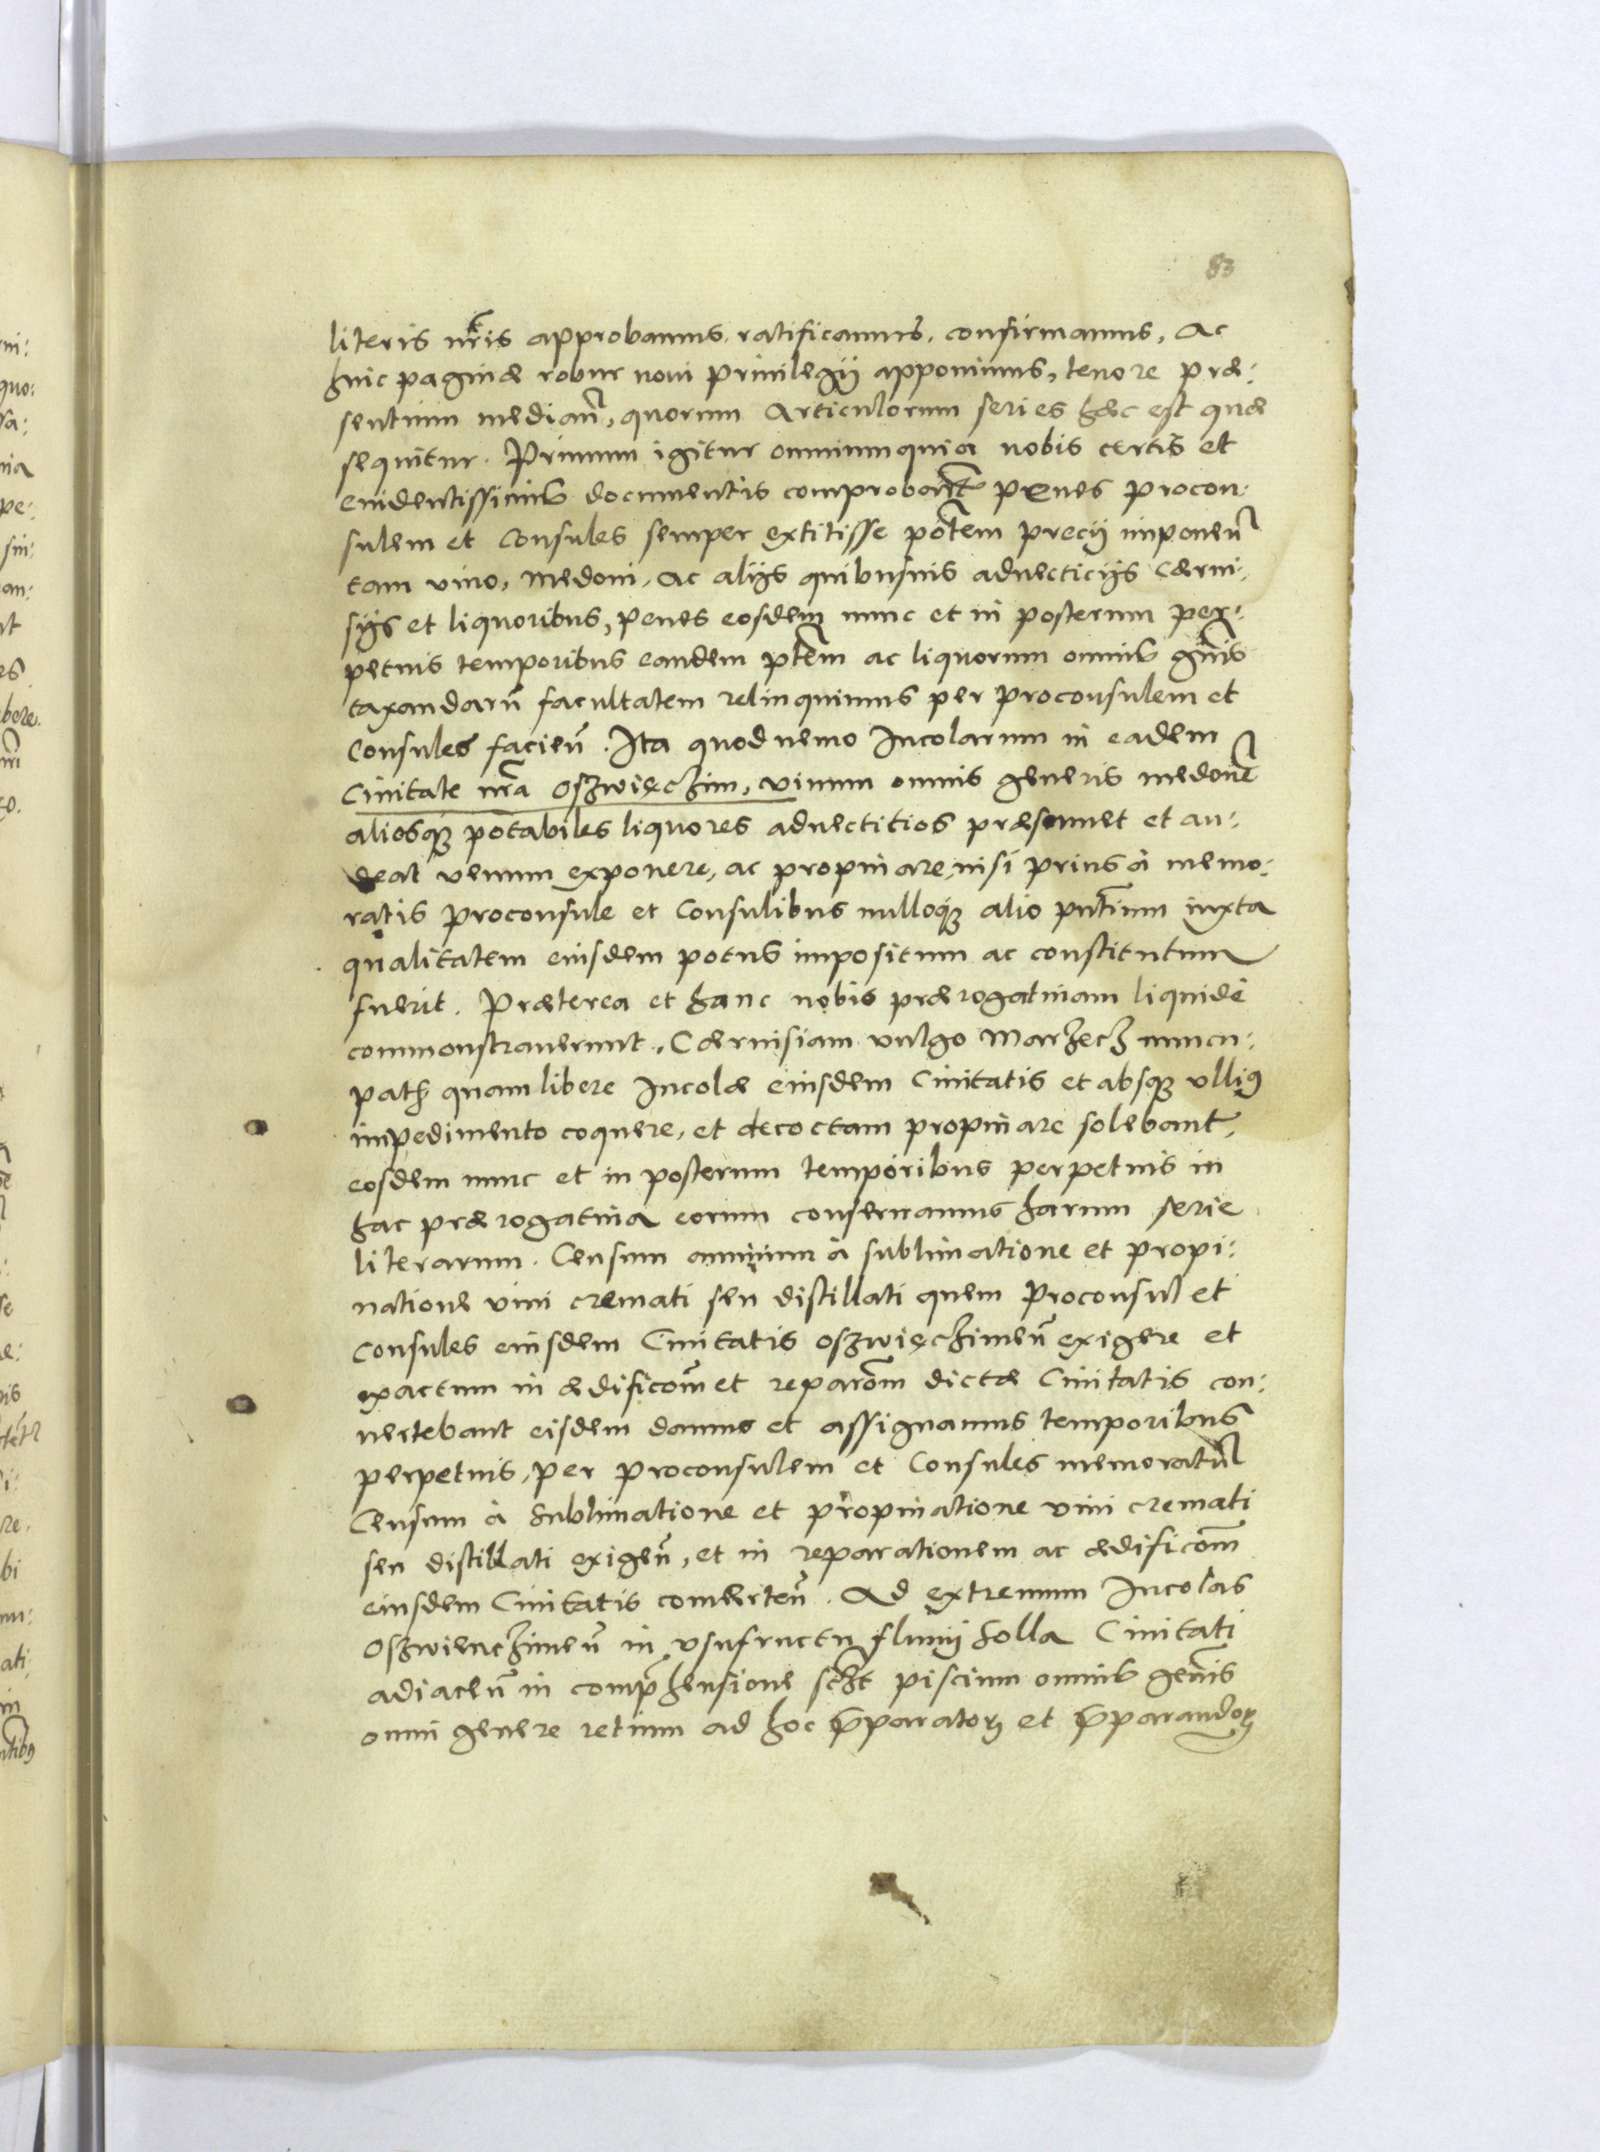 83
literis nr̃is approbamus, ratificamus, confirmamus, Ac
huic paginæ robur novi privilegij apponimus, tenore præ:
sentium median̄, quorum Articulorum series hæc est quæ
sequitur. Primum igitur omnium quia nobis certis et
evidentissimis documentis comprobar̃t penes Procon:
sulem et Consules semper extitisse pot̃em precij imponen̄
tam vino, Medoni, ac alijs quibusvis advecticijs Cærvi:
sijs et liquoribus, penes eosdem nunc et in posterum per:
petuis temporibus eandem ptẽm ac liquorum omnis gñis
taxandarū facultatem relinquimus per proconsulem et
Consules facien̄. Ita quod nemo Incolarum in eadem
Civitate nr̃a Oszwięczim, vinum omnis generis medonē
aliosq; potabiles liquores advectitios præsumet et au:
deat venum exponere, ac propinare, nisi prius à memo:
ratis Proconsule et Consulibus nulloq; alio pñtium iuxta
qualitatem eiusdem potus impositum ac constitutum
fuerit. Præterea et hanc nobis prærogativam liquidè
commonstraverunt, Cærvisiam vulgo Marzecz nuncu:
path quam libere Incolæ eiusdem Civitatis et absq; vlliꝰ
impedimento coquere, et decoctam propinare solebant,
eosdem nunc et in posterum temporibus perpetuis in
hac prærogativa eorum conservamus harum serie
literarum. Censum annuum à sublimatione et propi:
natione vini cremati seu distillati quem Proconsul et
Consules eiusdem Civitatis Oszwięczimen̄ exigere et
exactum in ædificom̄ et reparom̄ dictæ Civitatis con:
vertebant eisdem damus et assignamus temporibus
perpetuis, per Proconsulem et Consules memoratū
Censum à sublimatione et propinatione vini cremati
seu distillati exigen̄, et in reparationem ac ædificom̄
eiusdem Civitatis converten̄. Ad extremum Incolas
Oszwienczimen̄ in vsufructu fluvij Solla Civitati
adiacen̄ in comp̄hensione sc̃ht piscium omnis geñis
omni genere retium ad hoc p̄paratoꝝ et p̄parandoꝝ